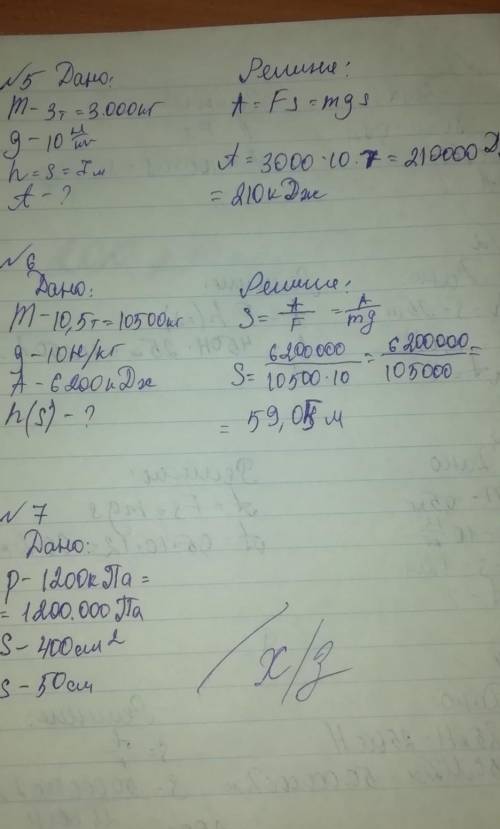 №5 Дано:
m - 3т = 3.000кг
g - 10 н/кг
h = s = 7м
A - ?
Решение:
A = Fs = mgs
A = 3000·10·7 = 210000 Д
= 210кДж
№6
Дано:
m - 10,5т = 10500кг
g - 10н/кг
A - 6200кДж
h(s) - ?
Решение:
S = A/F = A/mg
S = 6200000/10500·10 = 6200000/105000 =
= 59,05 м
№7
Дано:
p - 1200кПа =
= 1200.000Па
S - 400см²
s - 50см
/х/з